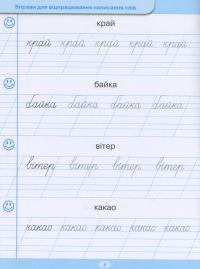 Вправи для відпрацювання написання слів
край
край край край край край
байка
байка байка байка байка
вітер
вітер вітер вітер вітер
какао
какао какао какао какао какао